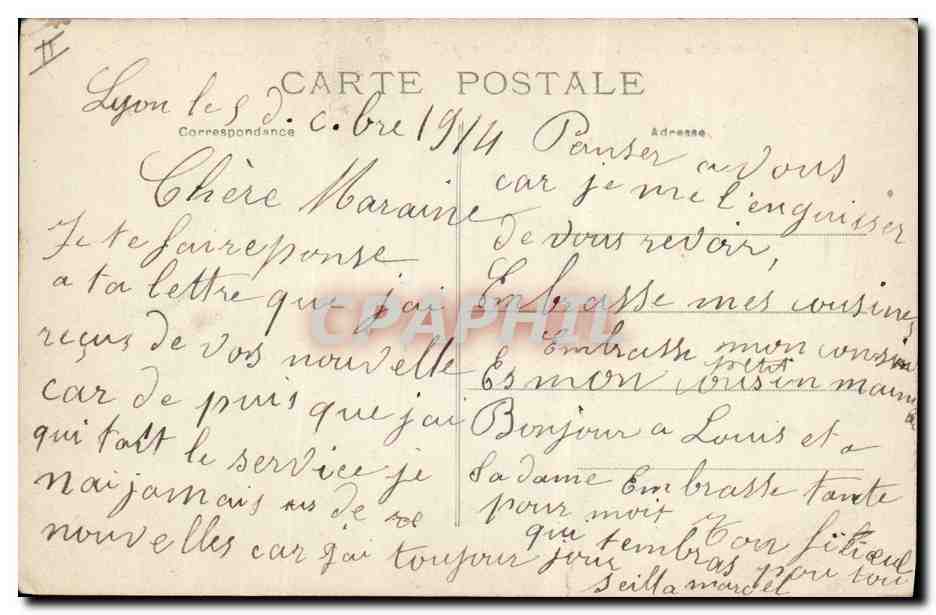 II
CARTE POSTALE
Correspondance
Adresse
Lyon le 5 d.c.bre 1914
Chère Maraine
Je te fai reponse
a ta lettre que j'ai
reçus de vos nouvelle
car de puis que j'ai
quitait le service je
n'ai jamais us de
nouvelles car j'ai toujour jour
Panser a vous
car je me l'enguisser
de vous revoir,
Embrasse mes cousines
Embrasse mon cousin
petit
Es mon cousin
Bonjour a Louis et a
sa dame Embrasse tante
pour moi
Ton filieul
qui t'embras pour tou
CPAPHIL